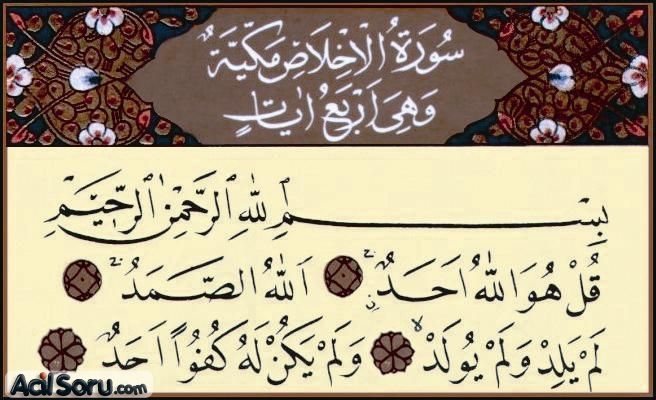 سُورَةُ الْاِخْلَاصِ مَكِّيَّةٌ
وَهِىَ اَرْبَعُ اٰيَاتٍ
بِسْمِ اللّٰهِ الرَّحْمٰنِ الرَّحِيمِ
قُلْ هُوَ اللّٰهُ اَحَدٌ اَللّٰهُ الصَّمَدُ
لَمْ يَلِدْ وَلَمْ يُولَدْ وَلَمْ يَكُنْ لَهُ كُفُوًا اَحَدٌ
AcilSoru.com